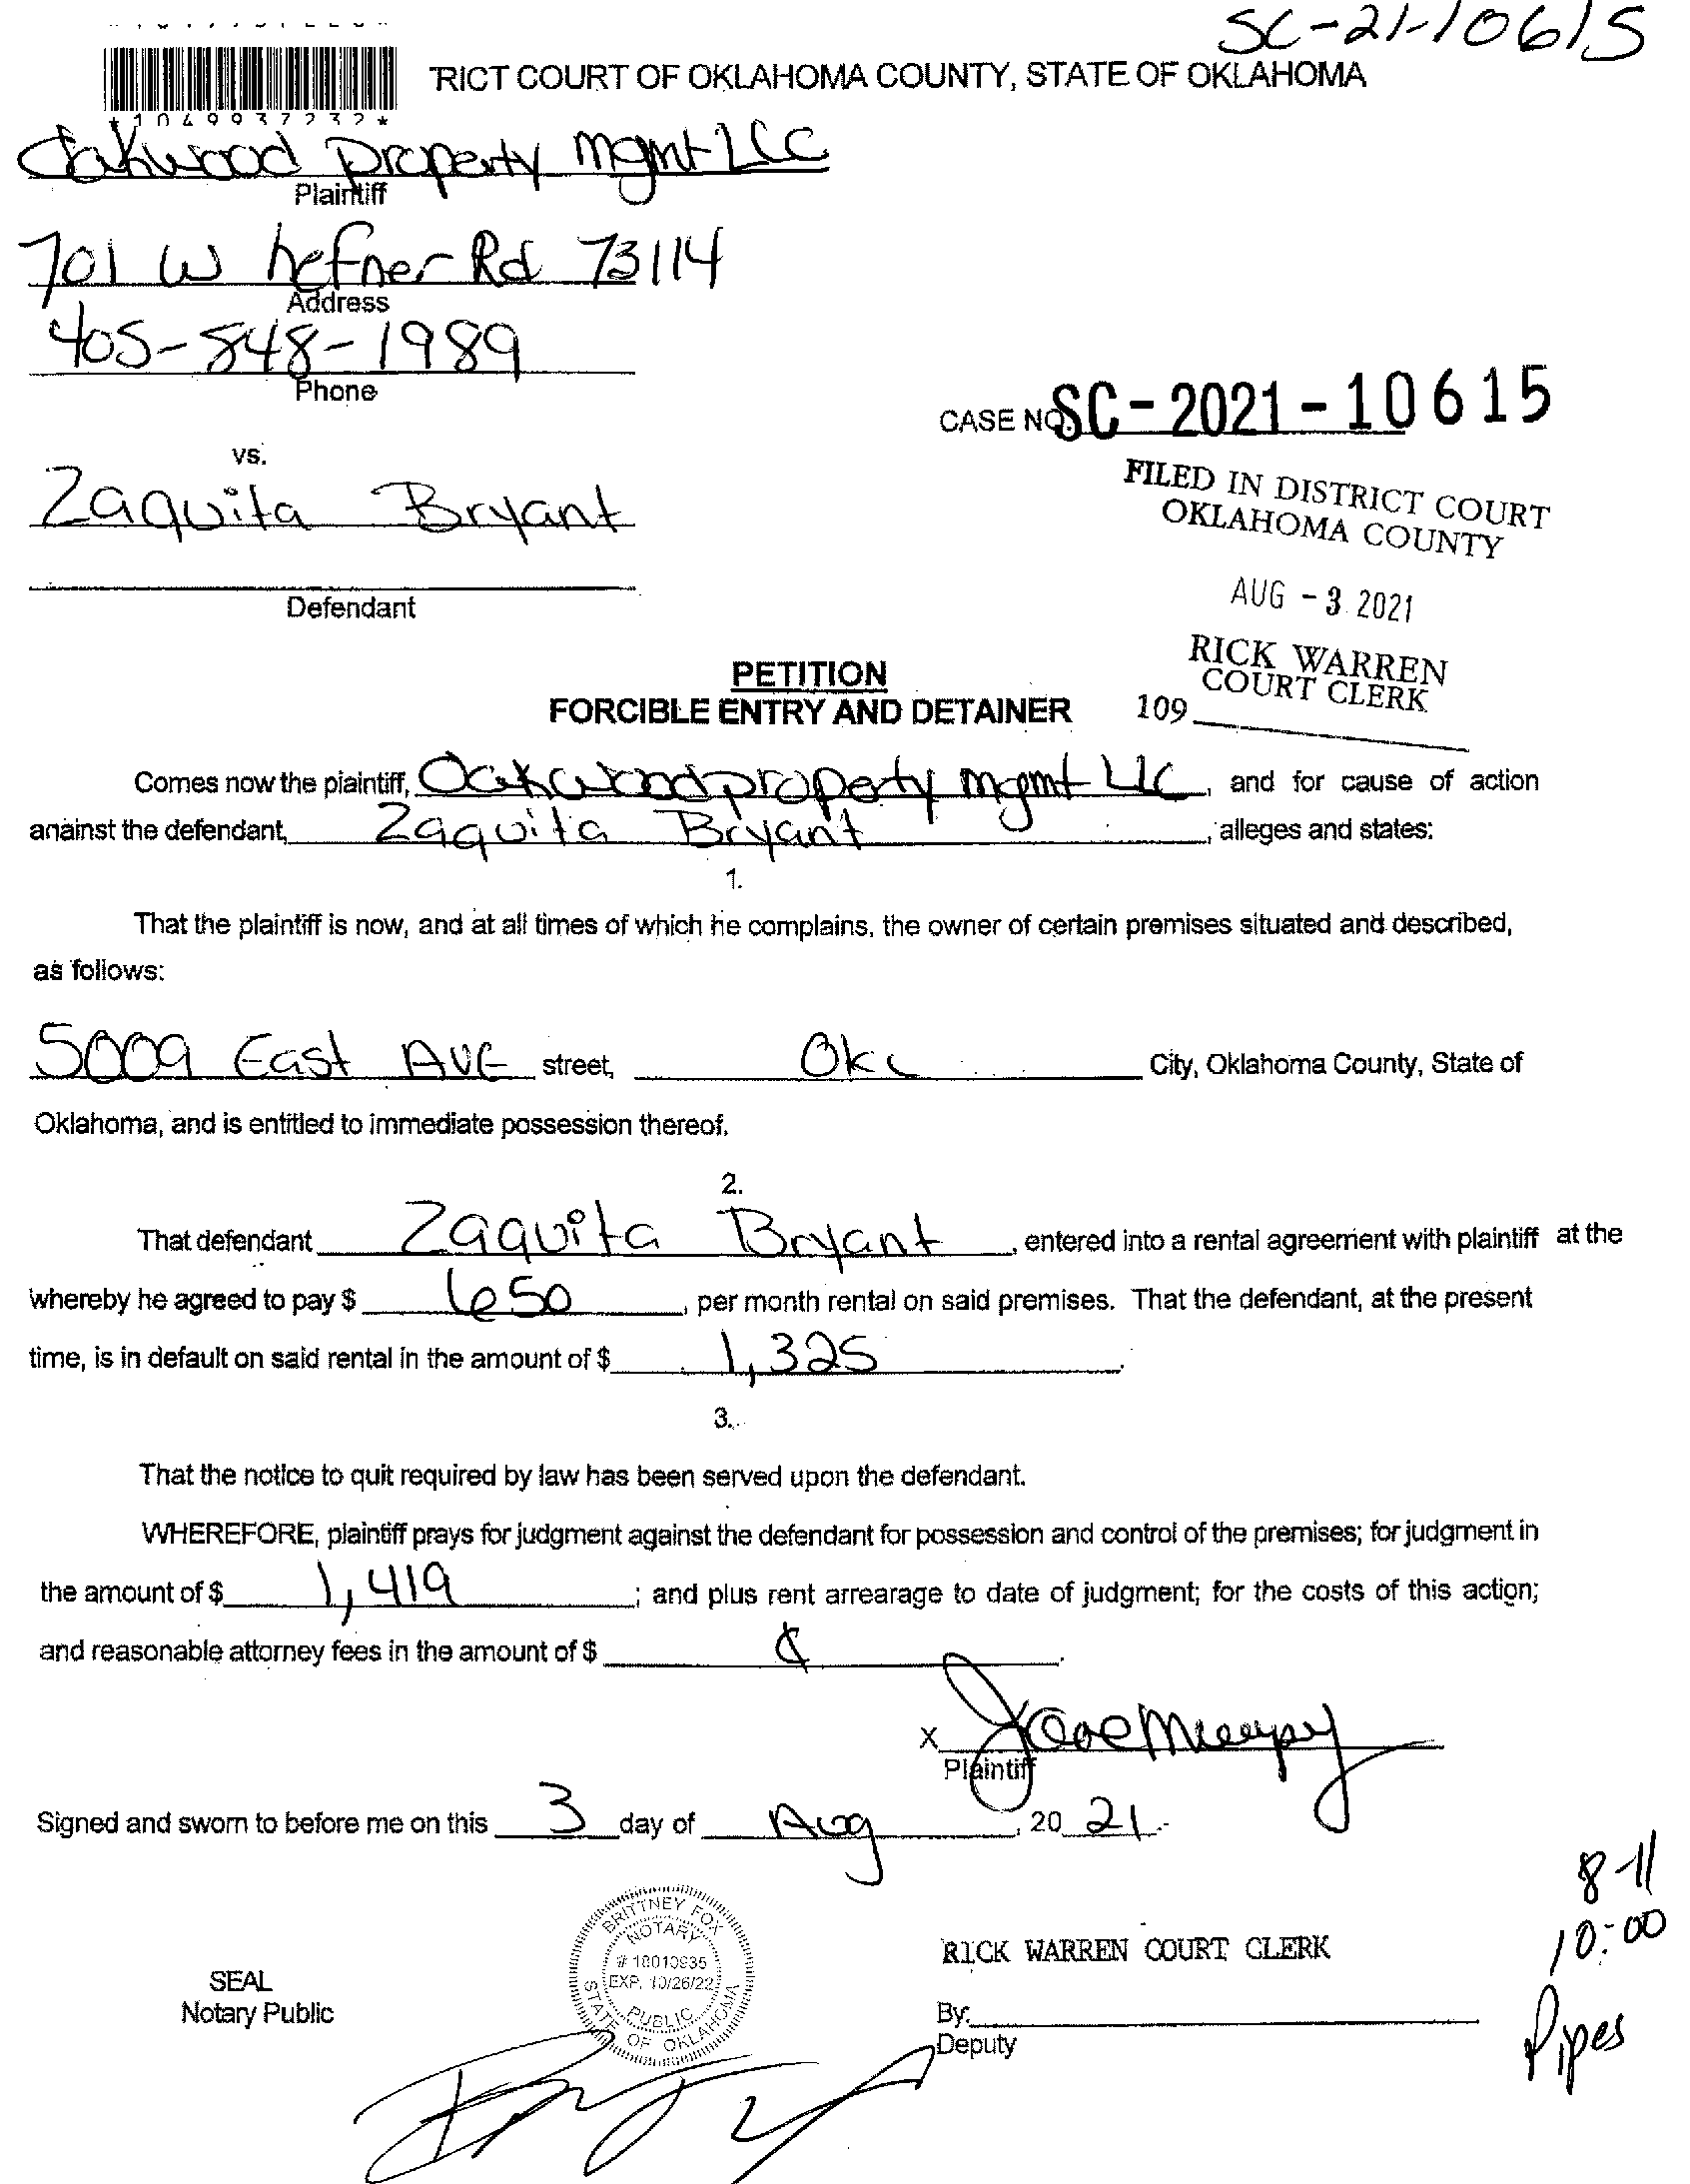 SC-21-10615
RICT COURT OF OKLAHOMA COUNTY, STATE OF OKLAHOMA
*1049937232*
Oakwood property mgmt LLC
Plaintiff
701 W hefner Rd 73114
Address
405-848-1989
Phone
CASE NO. SC-2021-10615
vs.
Zaquita Bryant
FILED IN DISTRICT COURT
OKLAHOMA COUNTY
AUG -3 2021
Defendant
RICK WARREN
COURT CLERK
109
PETITION
FORCIBLE ENTRY AND DETAINER
Comes now the plaintiff, Oakwood property mgmt LLC, and for cause of action
against the defendant, Zaquita Bryant, alleges and states:
1.
That the plaintiff is now, and at all times of which he complains, the owner of certain premises situated and described,
as follows:
5009 East AVE street, OKC City, Oklahoma County, State of
Oklahoma, and is entitled to immediate possession thereof.
2.
That defendant Zaquita Bryant, entered into a rental agreement with plaintiff at the
whereby he agreed to pay $ 650, per month rental on said premises. That the defendant, at the present
time, is in default on said rental in the amount of $ 1,325.
3.
That the notice to quit required by law has been served upon the defendant.
WHEREFORE, plaintiff prays for judgment against the defendant for possession and control of the premises; for judgment in
the amount of $ 1,419; and plus rent arrearage to date of judgment; for the costs of this action;
and reasonable attorney fees in the amount of $
X
Plaintiff
Signed and sworn to before me on this 3 day of Aug, 20 21.
8-11
10:00
Pipes
BRITTNEY FOX
NOTARY
# 18010935
EXP. 10/26/22
PUBLIC
STATE OF OKLAHOMA
SEAL
Notary Public
RICK WARREN COURT CLERK
By:
Deputy